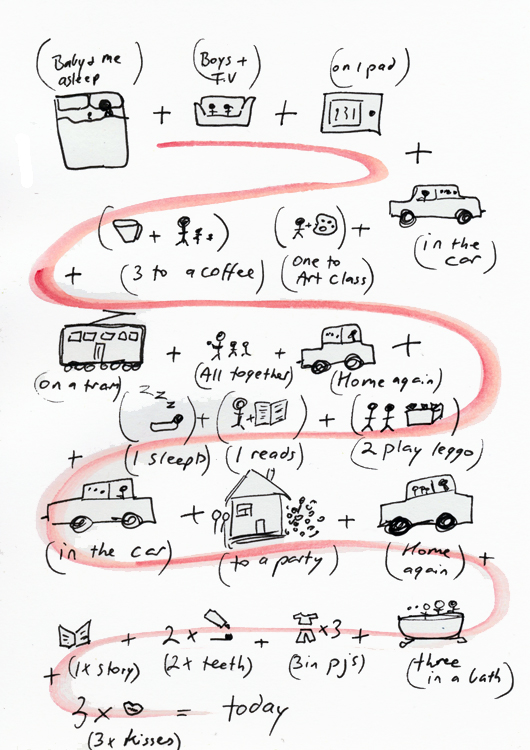 (Baby + me
asleep)
+
(Boys +
T.V)
+
(on ipad)
131
+
(in the
car)
( + )
(3 to a coffee)
( + )
(One to
Art Class)
+
+
(On a tram)
+
(All together)
+
(Home again)
+
(ZZZ)
(1 sleeps)
+
( + )
(1 reads)
+
(2 play leggo)
+
(in the car)
+
(to a party)
+
(Home
again)
+
(1x story)
+
2 x
(2x teeth)
+
x3
(3 in pjs)
+
(three
in a bath)
+
3 x
(3x kisses)
= today